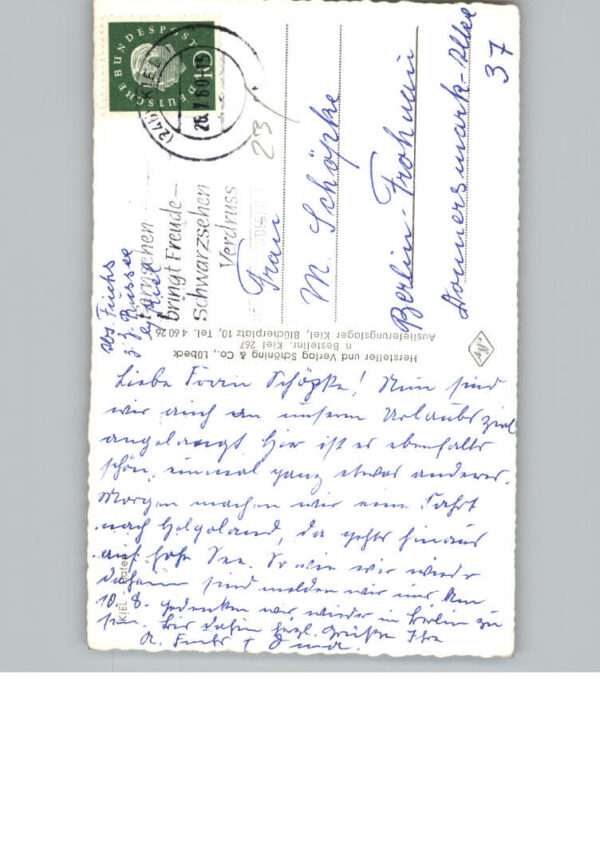 DEUTSCHE BUNDESPOST
10
(24b) KIEL
26.7.60
Fernsehen
bringt Freude –
Schwarzsehen
Verdruss
23
Abs. Fuchs
z. Z. Russee
b/ Kiel
Frau
M. Schöpke
Berlin-Frohnau
Donnersmark-Allee
37
Hersteller und Verlag Schöning & Co., Lübeck
n Bestellnr. Kiel 267
Auslieferungslager Kiel, Blücherplatz 10, Tel. 4 60 26
KIEL
Liebe Frau Schöpke! Nun sind
wir auch an unserm Urlaubsziel
angelangt. Hier ist es ebenfalls
schön, einmal ganz etwas anderes.
Morgen machen wir eine Fahrt
nach Helgoland, da gehts hinaus
auf hohe See. So wie wir wieder
daheim sind melden wir uns. Am
10.8. gedenken wir wieder in Berlin zu
sein. Bis dahin herzl. Grüße Ihre
A. Fuchs +